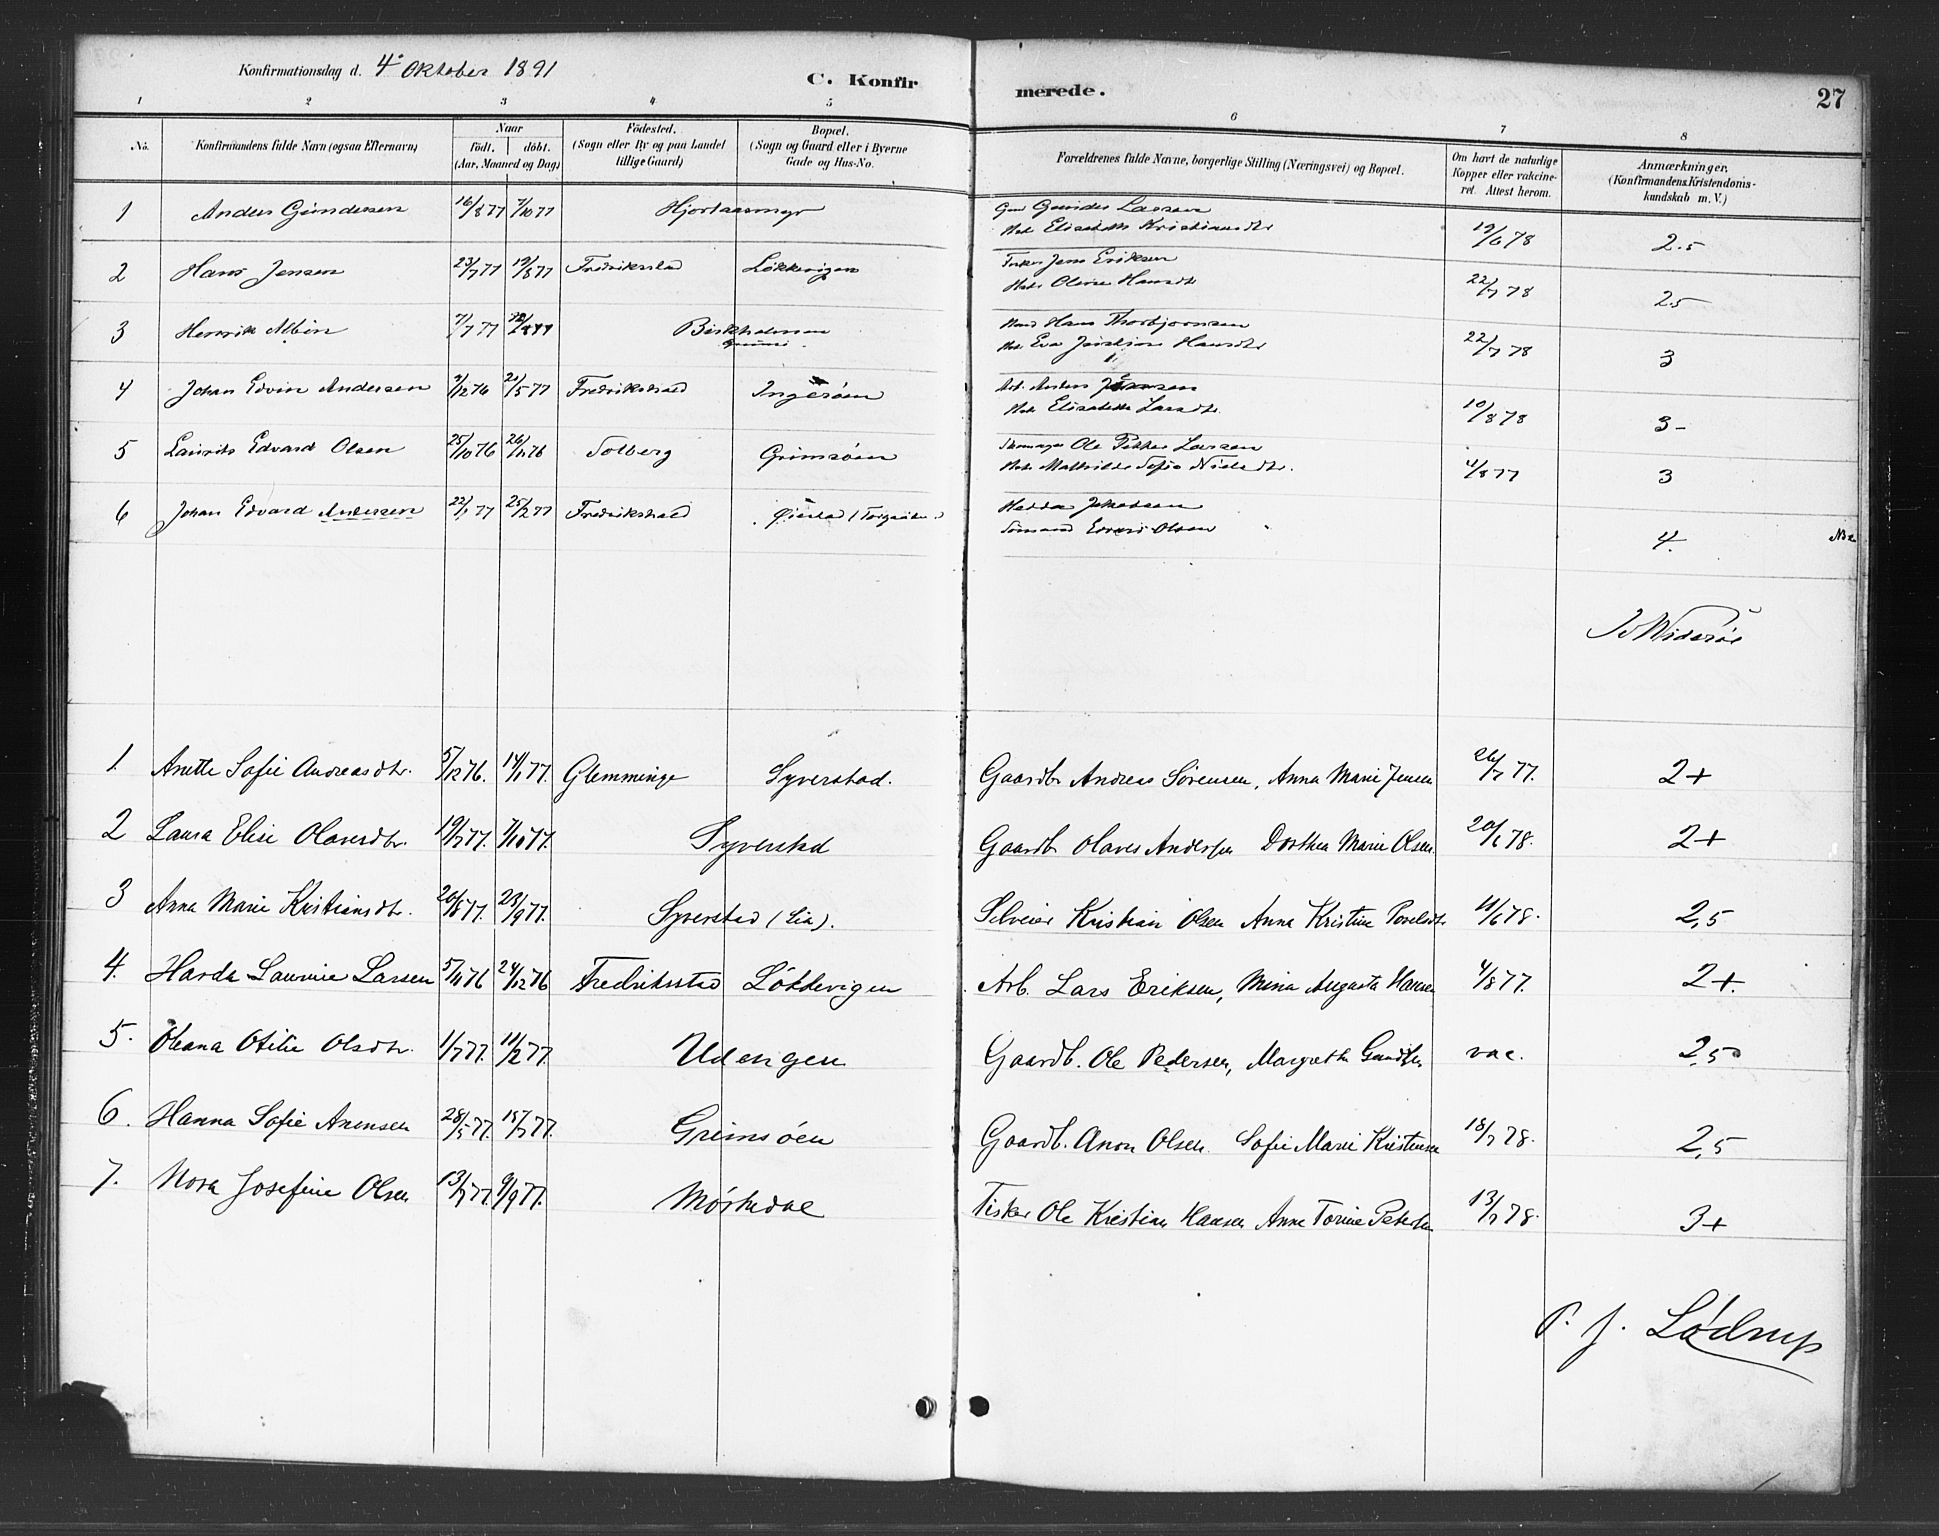 Konfirmationsdag d. 4de Oktober 1891
C. Konfirmerede.
27
1 2 3 4 5 6 7 8
No.
Konfirmandens fulde Navn (ogsaa Efternavn)
Naar
födt. döbt.
(Aar, Maaned og Dag)
Födested.
(Sogn eller By og paa Landet
tillige Gaard)
Bopæl.
(Sogn og Gaard eller i Byerne
Gade og Hus-No.
Forældrenes fulde Navne, borgerlige Stilling (Næringsvei) og Bopæl.
Om havt de naturlige
Kopper eller vakcine-
ret. Attest herom.
Anmærkninger.
(Konfirmandens Kristendoms-
kundskab m. V.)
1 Anders Gundersen 16/8 77 7/10 77 Hjortaasmyr Gunder Larsen
Elisabeth Kristiansdtr 19/6 78 2.5
2 Hans Jensen 23/7 77 19/8 77 Fredriksstad Løkkevigen Fisker Jens Eriksen
Oline Hansdtr 22/7 78 2.5
3 Henrik Albin 7/7 77 12/8 77 Birkholmen
Hans Thorbjørnsen
Eva Hansdtr 22/7 78 3
4 Johan Edvin Andersen 9/12 76 21/5 77 Fredrikshald Ingerøen Arb. Anders Jensen
Elisabeth Larsdtr. 10/8 78 3-
5 Laurits Edvard Olsen 25/10 76 26/11 76 Solberg Grimsøen Ole Petter Larsen
Mathilde Sofie Nielsdtr. 4/8 77 3
6 Johan Edvard Andersen 22/1 77 25/2 77 Fredrikshald Hedda Jakobsen
Sømand Edvard Olsen 4.
J. Widerøe
1. Anette Sofie Andreasdtr. 5/12 76. 14/1 77. Glemminge Syverstad. Gaardbr Andreas Sørensen, Anna Marie Jensen 26/7 77. 2+
2 Laura Elise Olavesdtr. 19/7 77. 7/10 77. Syverstad Gaardb Olaves Andersen Dorthea Marie Olsen. 20/6 78. 2+
3 Anna Marie Kristiansdtr. 20/8 77. 23/9 77. Syverstad (Lia). Selveier Kristian Olsen Anna Kristine Povelsdtr 11/6 78. 2,5
4. Harda Laurine Larsen 5/11 76 24/12 76 Fredriksstad Løkkevigen Arb. Lars Eriksen, Mina Augusta Hansen 4/8 77. 2+.
5. Oleana Otilie Olsdtr. 1/7 77. 11/2 77. Udengen Gaardb. Ole Pedersen, Margrethe vac. 2,5
6. Hanna Sofie Anonsen 28/5 77. 15/7 77. Grimsøen Gaardb. Anon Olsen. Sofie Marie Kristensen 18/7 78. 2,5
7. Nora Josefine Olsen 13/7 77. 9/9 77. Mørkedal Fisker Ole Kristian Hansen Anne Torine Petersen 13/7 78. 3+
P. J. Lødrup